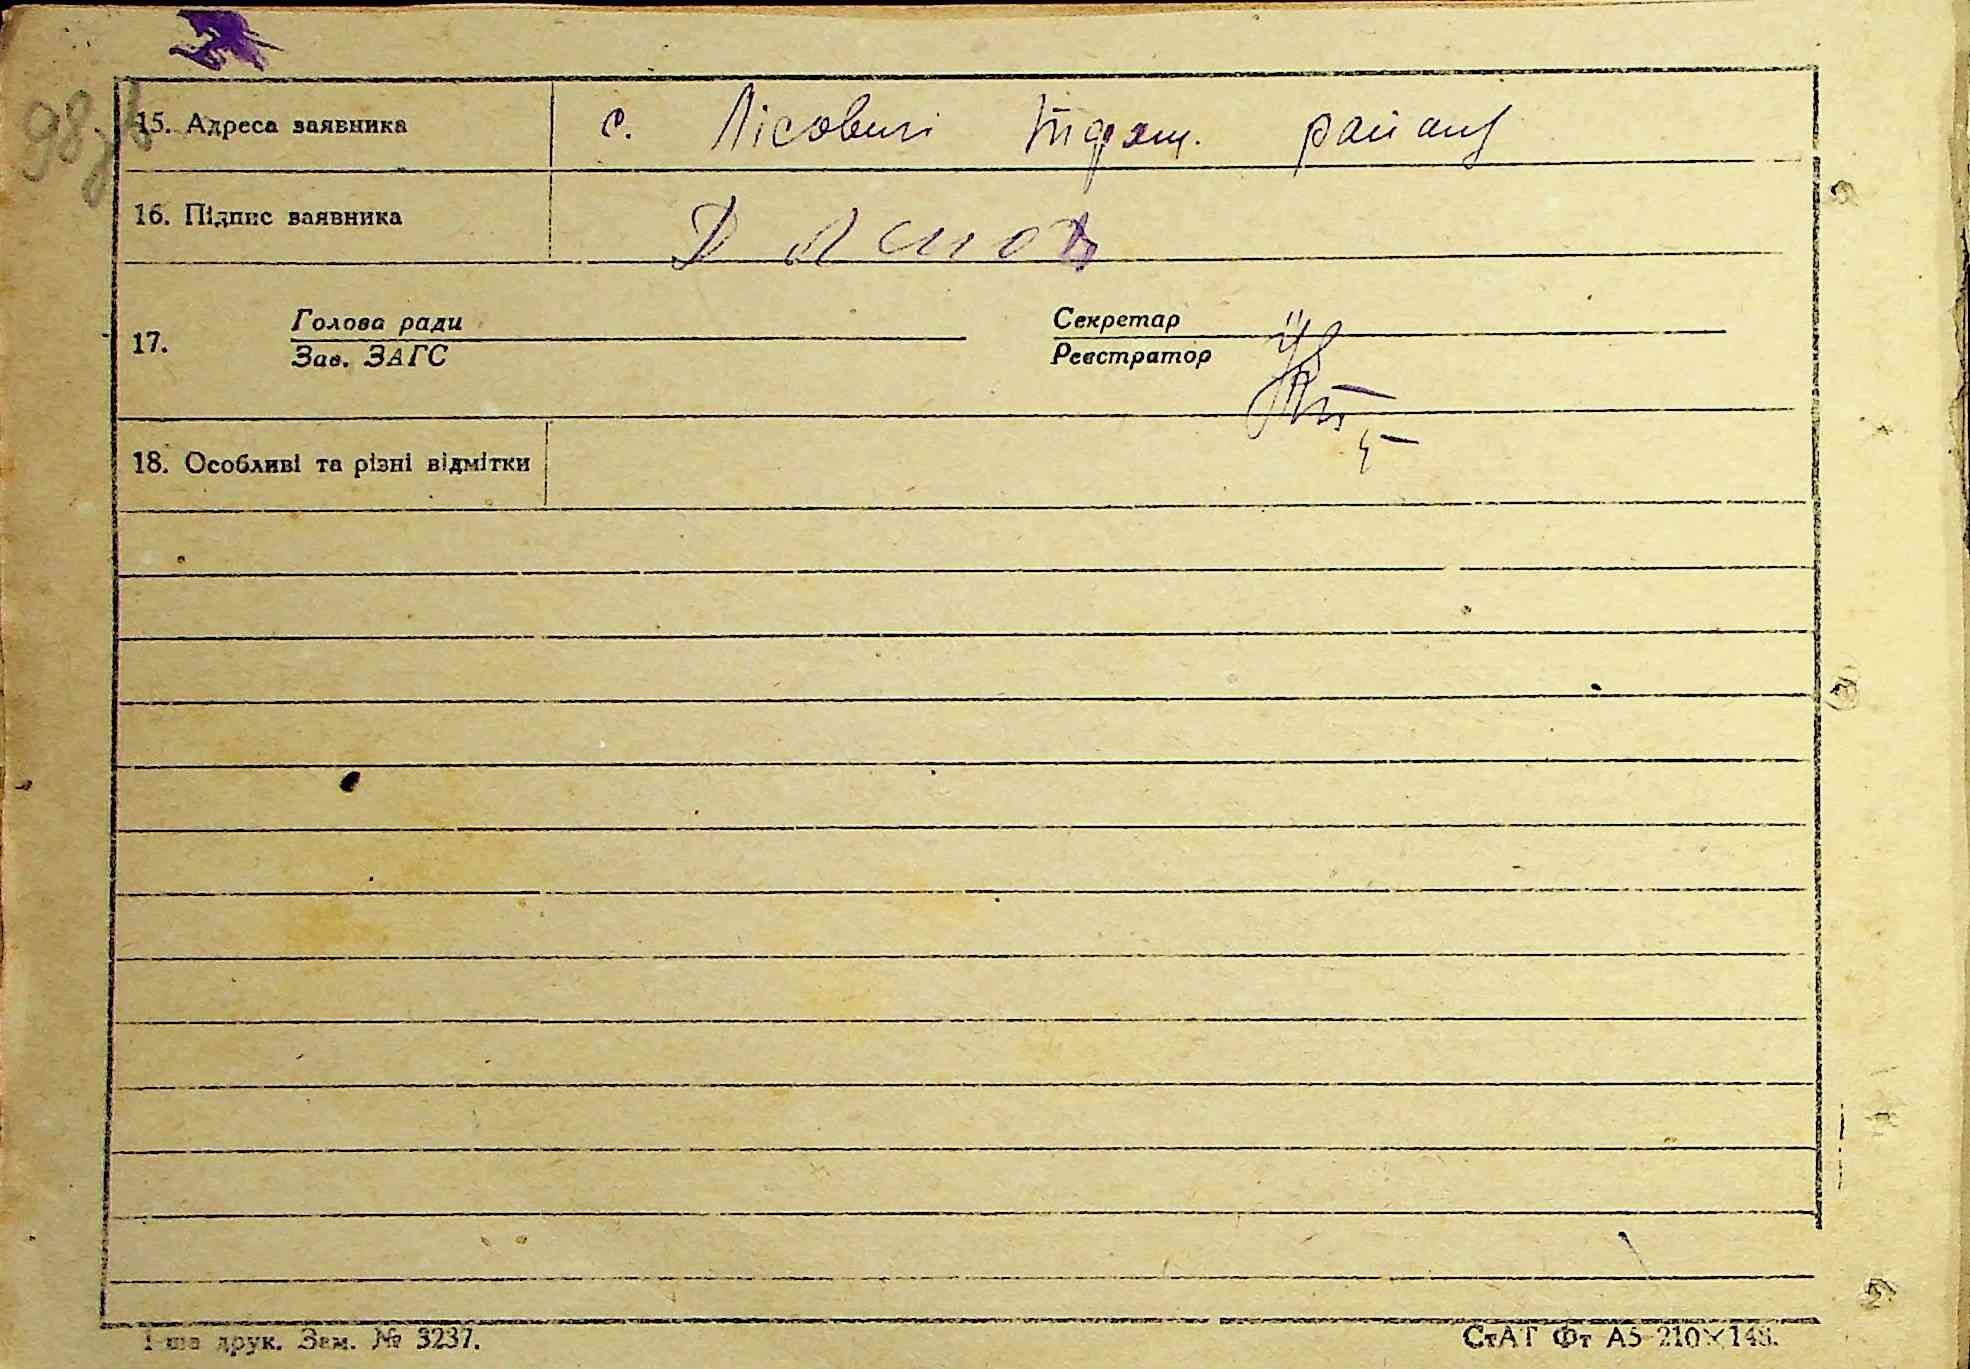 98зв
15. Адреса заявника с. Лісовичі район
16. Підпис заявника
Голова ради Секретар
17.
Зав. ЗАГС Реєстратор
18. Особливі та різні відмітки
1-ша друк. Зам. № 3237. СтАТ Фт А5-210×148.